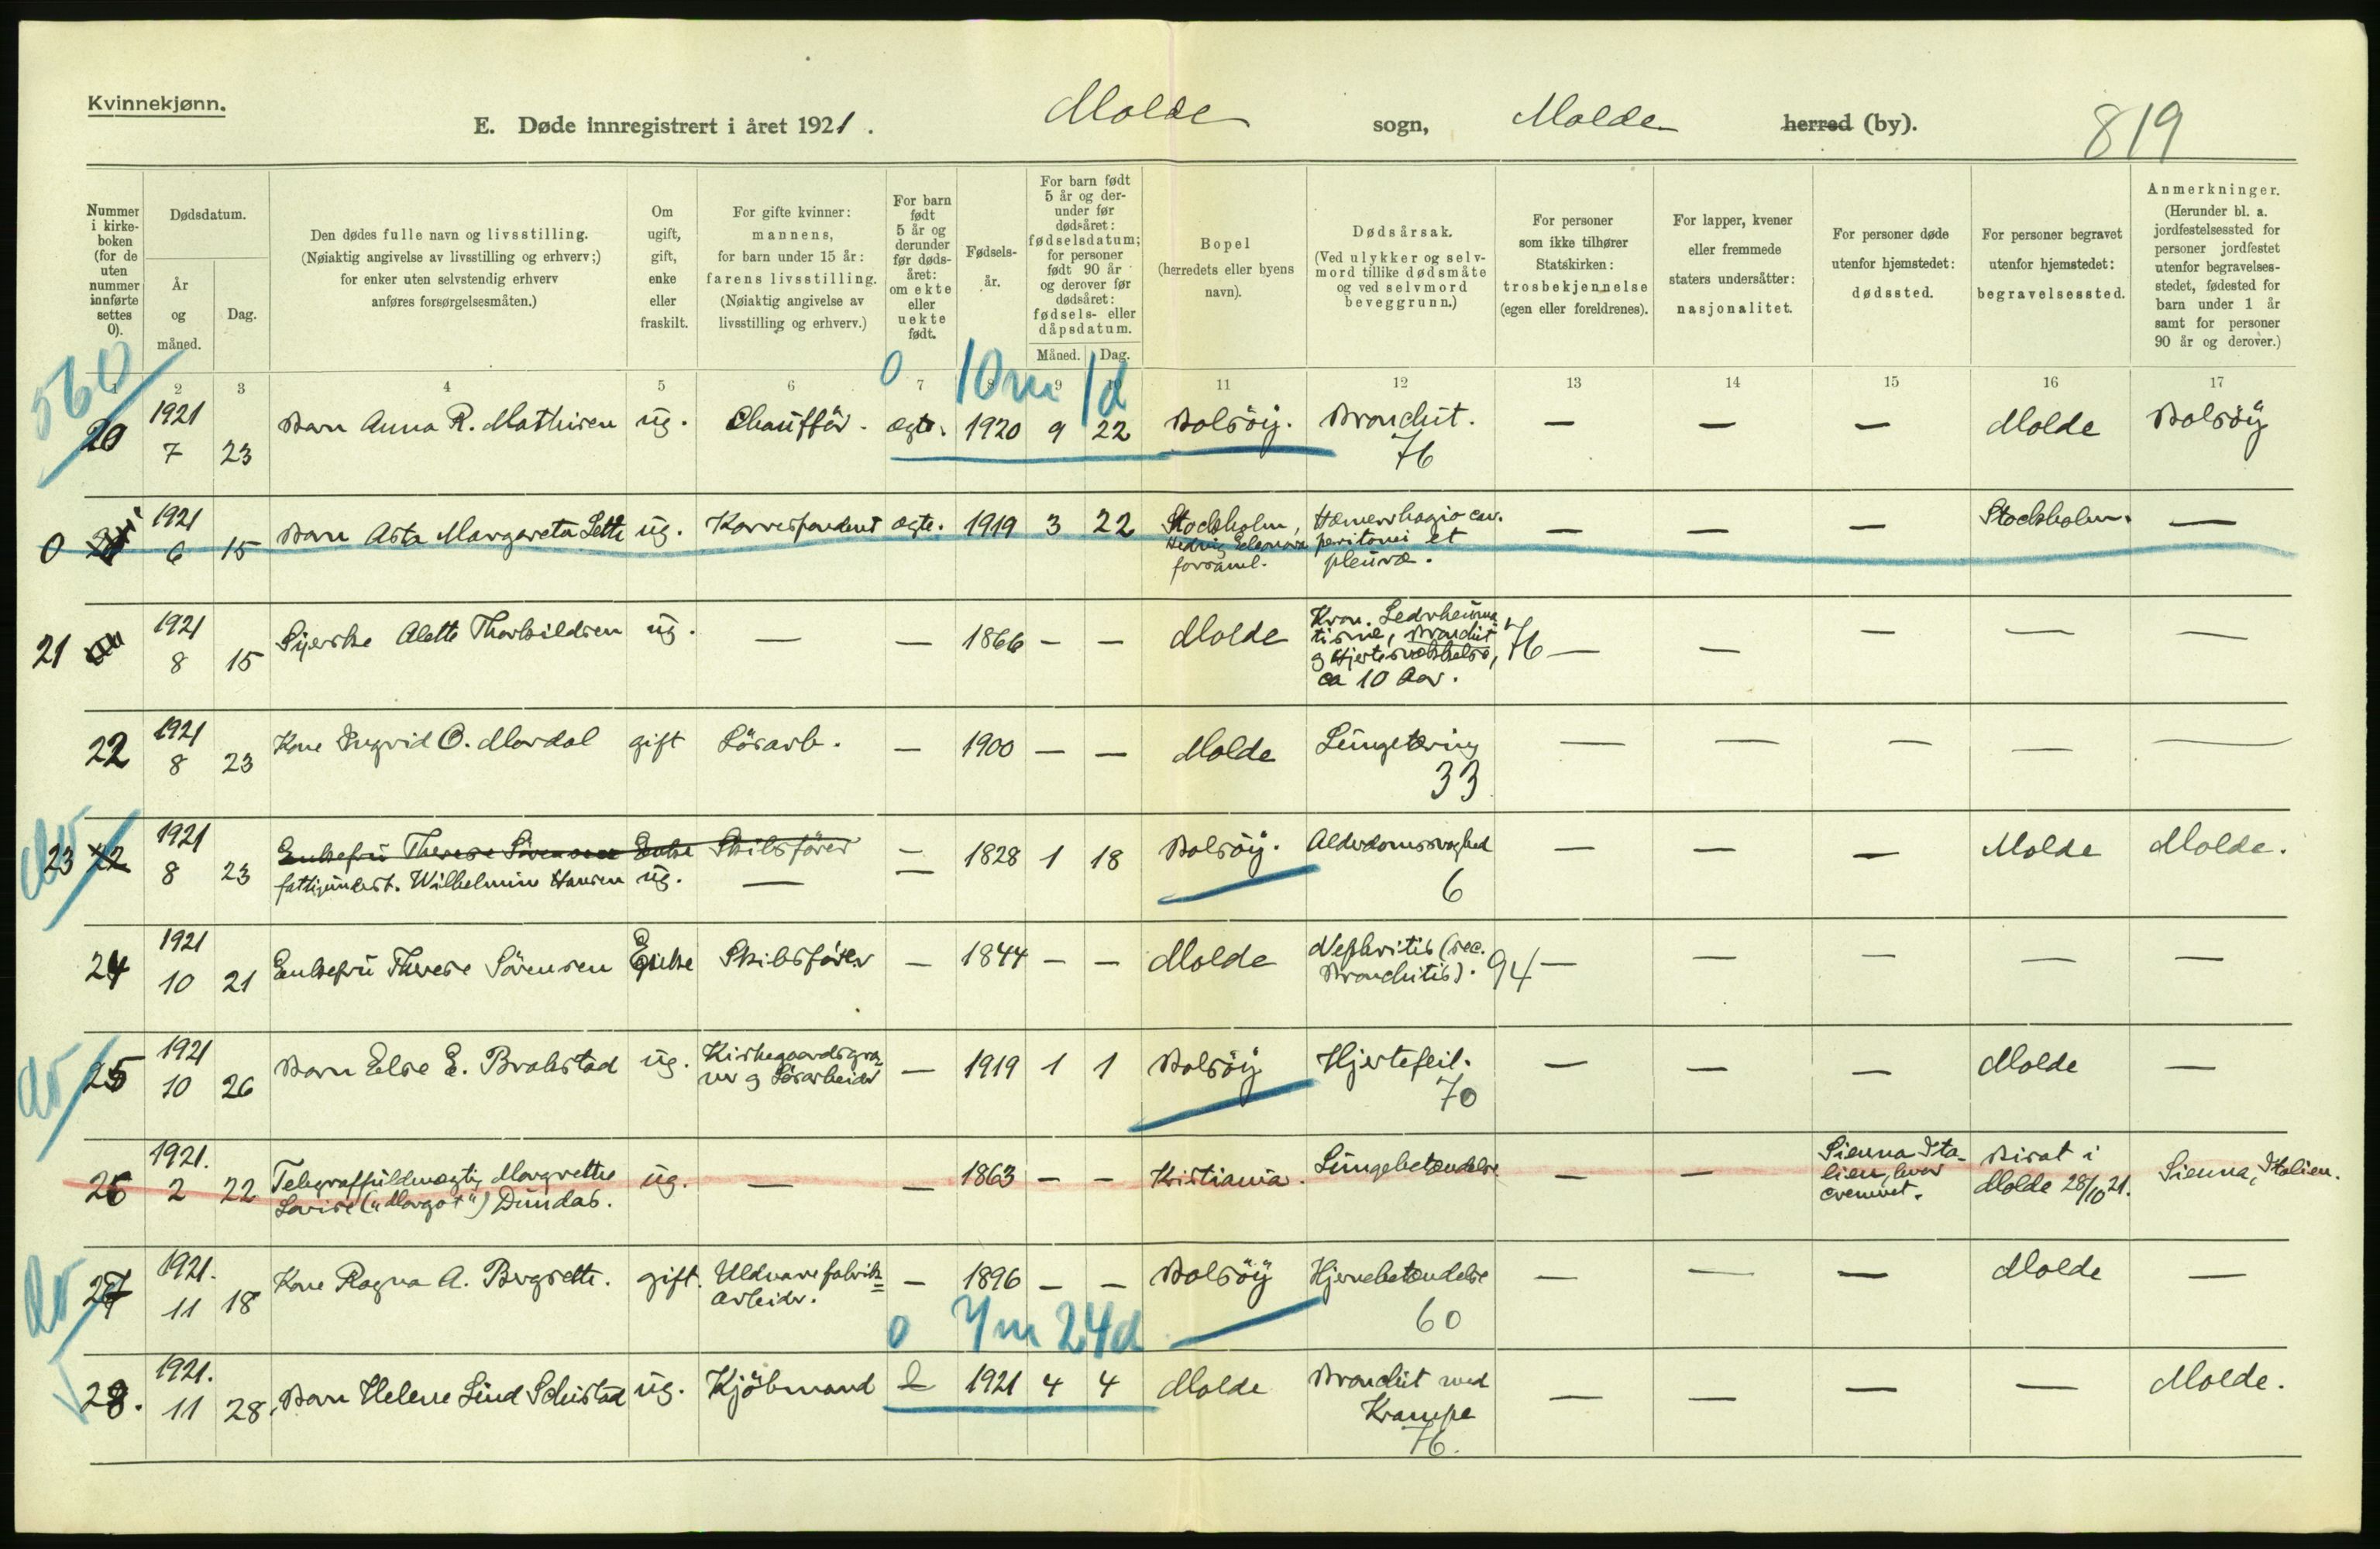 Kvinnekjønn.
E. Døde innregistrert i året 1921. Molde sogn, Molde herred (by). 819
Nummer i kirke-boken (for de uten nummer innførte settes 0).
Dødsdatum.
År og måned.
Dag.
Den dødes fulle navn og livsstilling.
(Nøiaktig angivelse av livsstilling og erhverv;)
for enker uten selvstendig erhverv
anføres forsørgelsesmåten.)
Om ugift, gift, enke eller fraskilt.
For gifte kvinner:
mannens,
for barn under 15 år:
farens livsstilling.
(Nøiaktig angivelse av
livsstilling og erhverv.)
For barn født 5 år og derunder før døds-året: om ekte eller uekte født.
Fødsels-år.
For barn født 5 år og der-under før dødsåret: fødselsdatum; for personer født 90 år og derover før dødsåret: fødsels- eller dåpsdatum.
Måned. Dag.
Bopel
(herredets eller byens navn).
Dødsårsak.
(Ved ulykker og selv-mord tillike dødsmåte og ved selvmord beveggrunn.)
For personer som ikke tilhører Statskirken:
trosbekjennelse
(egen eller foreldrenes).
For lapper, kvener eller fremmede staters undersåtter:
nasjonalitet.
For personer døde utenfor hjemstedet:
dødssted.
For personer begravet utenfor hjemstedet:
begravelsessted.
Anmerkninger.
(Herunder bl. a. jordfestelsessted for personer jordfestet utenfor begravelses-stedet, fødested for barn under 1 år samt for personer 90 år og derover.)
1 2 3 4 5 6 7 8 9 10 11 12 13 14 15 16 17
560 0 10 m 1 d
20 1921 7 23 Barn Anna R. Mathisen ug. Chauffør. ægte. 1920 9 22 Bolsöy. Bronchit. 76 — — — Molde Bolsöy
0 1921 6 15 Barn Asta Margareta Sette ug. Korrespondent ægte. 1919 3 22 Stockholm, Hedvig Eleonora forsaml. Hæmorrhagia cav. peritonei et pleuræ. — — — Stockholm. —
21 1921 8 15 Syerske Alette Thorkildsen ug. — — 1866 — — Molde Kron. Ledrheumatisme, Bronchit og Hjertesvækkelse, ca 10 Aar. 76 — — — — —
22 1921 8 23 Kone Ingrid O. Mordal gift Lösarb. — 1900 — — Molde Lungetæring 33 — — — — —
23 22 1921 8 23 Enkefru Therese Sörensen Enke Skibsförer —
fattigunderst. Wilhelmine Hansen ug. — — 1828 1 18 Bolsöy. Alderdomssvaghed 6 — — — Molde Molde.
24 1921 10 21 Enkefru Therese Sörensen Enke Skibsförer — 1844 — — Molde Nephritis (sec. Bronchitis). 94 — — — — —
25 1921 10 26 Barn Else E. Brakstad ug. Kirkegaardsgraver og Lösarbeider — 1919 1 1 Bolsöy Hjertefeil. 70 — — — Molde —
26 1921. 2 22 Telegraffuldmægtig Margrethe Lovise („Margot“) Dundas. ug. — — 1863 — — Kristiania. Lungebetændelse — — Sienna Italien, hvor cremeret. Bisat i Molde 28/10 21. Sienna, Italien.
27 1921. 11 18 Kone Ragna A. Bergsette. gift. Uldvarefabrik= arbeider. — 1896 — — Bolsöy Hjernebetændelse 60 — — — Molde —
0 7 m 24 d
28. 1921. 11 28. Barn Helene Lund Schistad ug. Kjöbmand 1921 4 4 Molde Bronchit med Krampe 76. — — — — Molde.